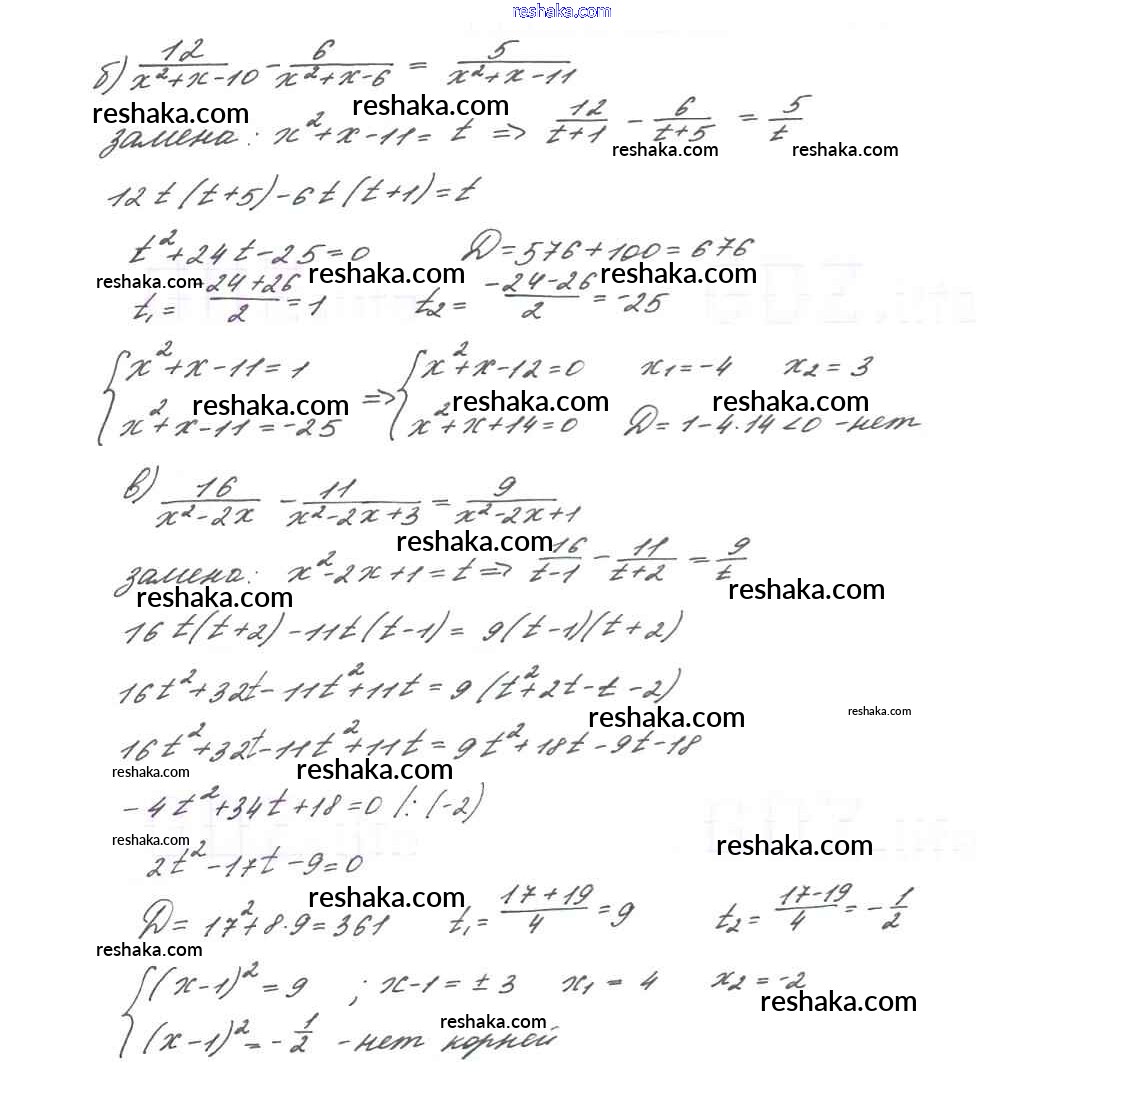 reshaka.com
б) 12/(x²+x-10) - 6/(x²+x-6) = 5/(x²+x-11)
reshaka.com reshaka.com
замена: x²+x-11=t => 12/(t+1) - 6/(t+5) = 5/t
reshaka.com reshaka.com
12t(t+5)-6t(t+1)=t
t²+24t-25=0 D=576+100=676
reshaka.com reshaka.com reshaka.com
t₁= (-24+26)/2 =1 t₂= (-24-26)/2 =-25
{x²+x-11=1 => {x²+x-12=0 x₁=-4 x₂=3
reshaka.com reshaka.com reshaka.com
x²+x-11=-25 x²+x+14=0 D=1-4·14<0 -нет
в) 16/(x²-2x) - 11/(x²-2x+3) = 9/(x²-2x+1)
reshaka.com
замена: x²-2x+1=t => 16/(t-1) - 11/(t+2) = 9/t
reshaka.com reshaka.com
16t(t+2)-11t(t-1)= 9(t-1)(t+2)
16t²+32t-11t²+11t=9(t²+2t-t-2)
reshaka.com reshaka.com
16t²+32t-11t²+11t=9t²+18t-9t-18
reshaka.com reshaka.com
-4t²+34t+18=0 /:(-2)
reshaka.com reshaka.com
2t²-17t-9=0
reshaka.com
D=17²+8·9=361 t₁= (17+19)/4 =9 t₂= (17-19)/4 =-1/2
reshaka.com
{(x-1)²=9 ; x-1=±3 x₁=4 x₂=-2
reshaka.com reshaka.com
(x-1)²=-1/2 -нет корней